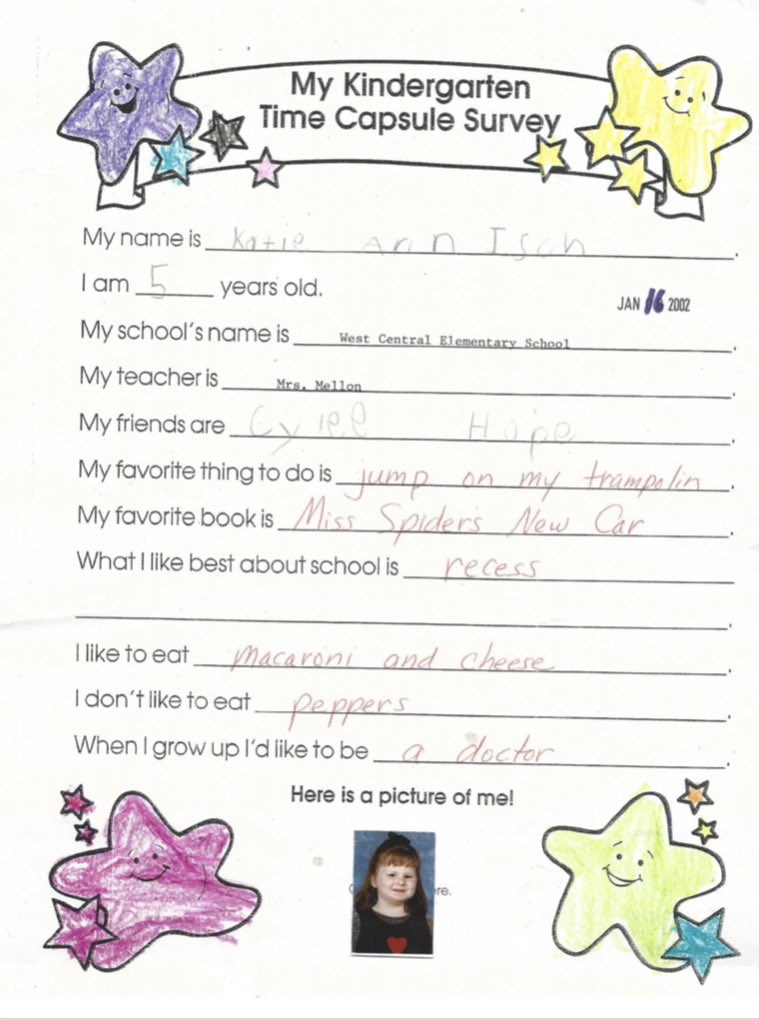 My Kindergarten
Time Capsule Survey
My name is Katie Ann Isch.
I am 5 years old.
JAN 16 2002
My school's name is West Central Elementary School.
My teacher is Mrs. Mellon.
My friends are Cylee Hope.
My favorite thing to do is jump on my trampolin.
My favorite book is Miss Spider's New Car.
What I like best about school is recess
.
I like to eat macaroni and cheese.
I don't like to eat peppers.
When I grow up I'd like to be a doctor.
Here is a picture of me!